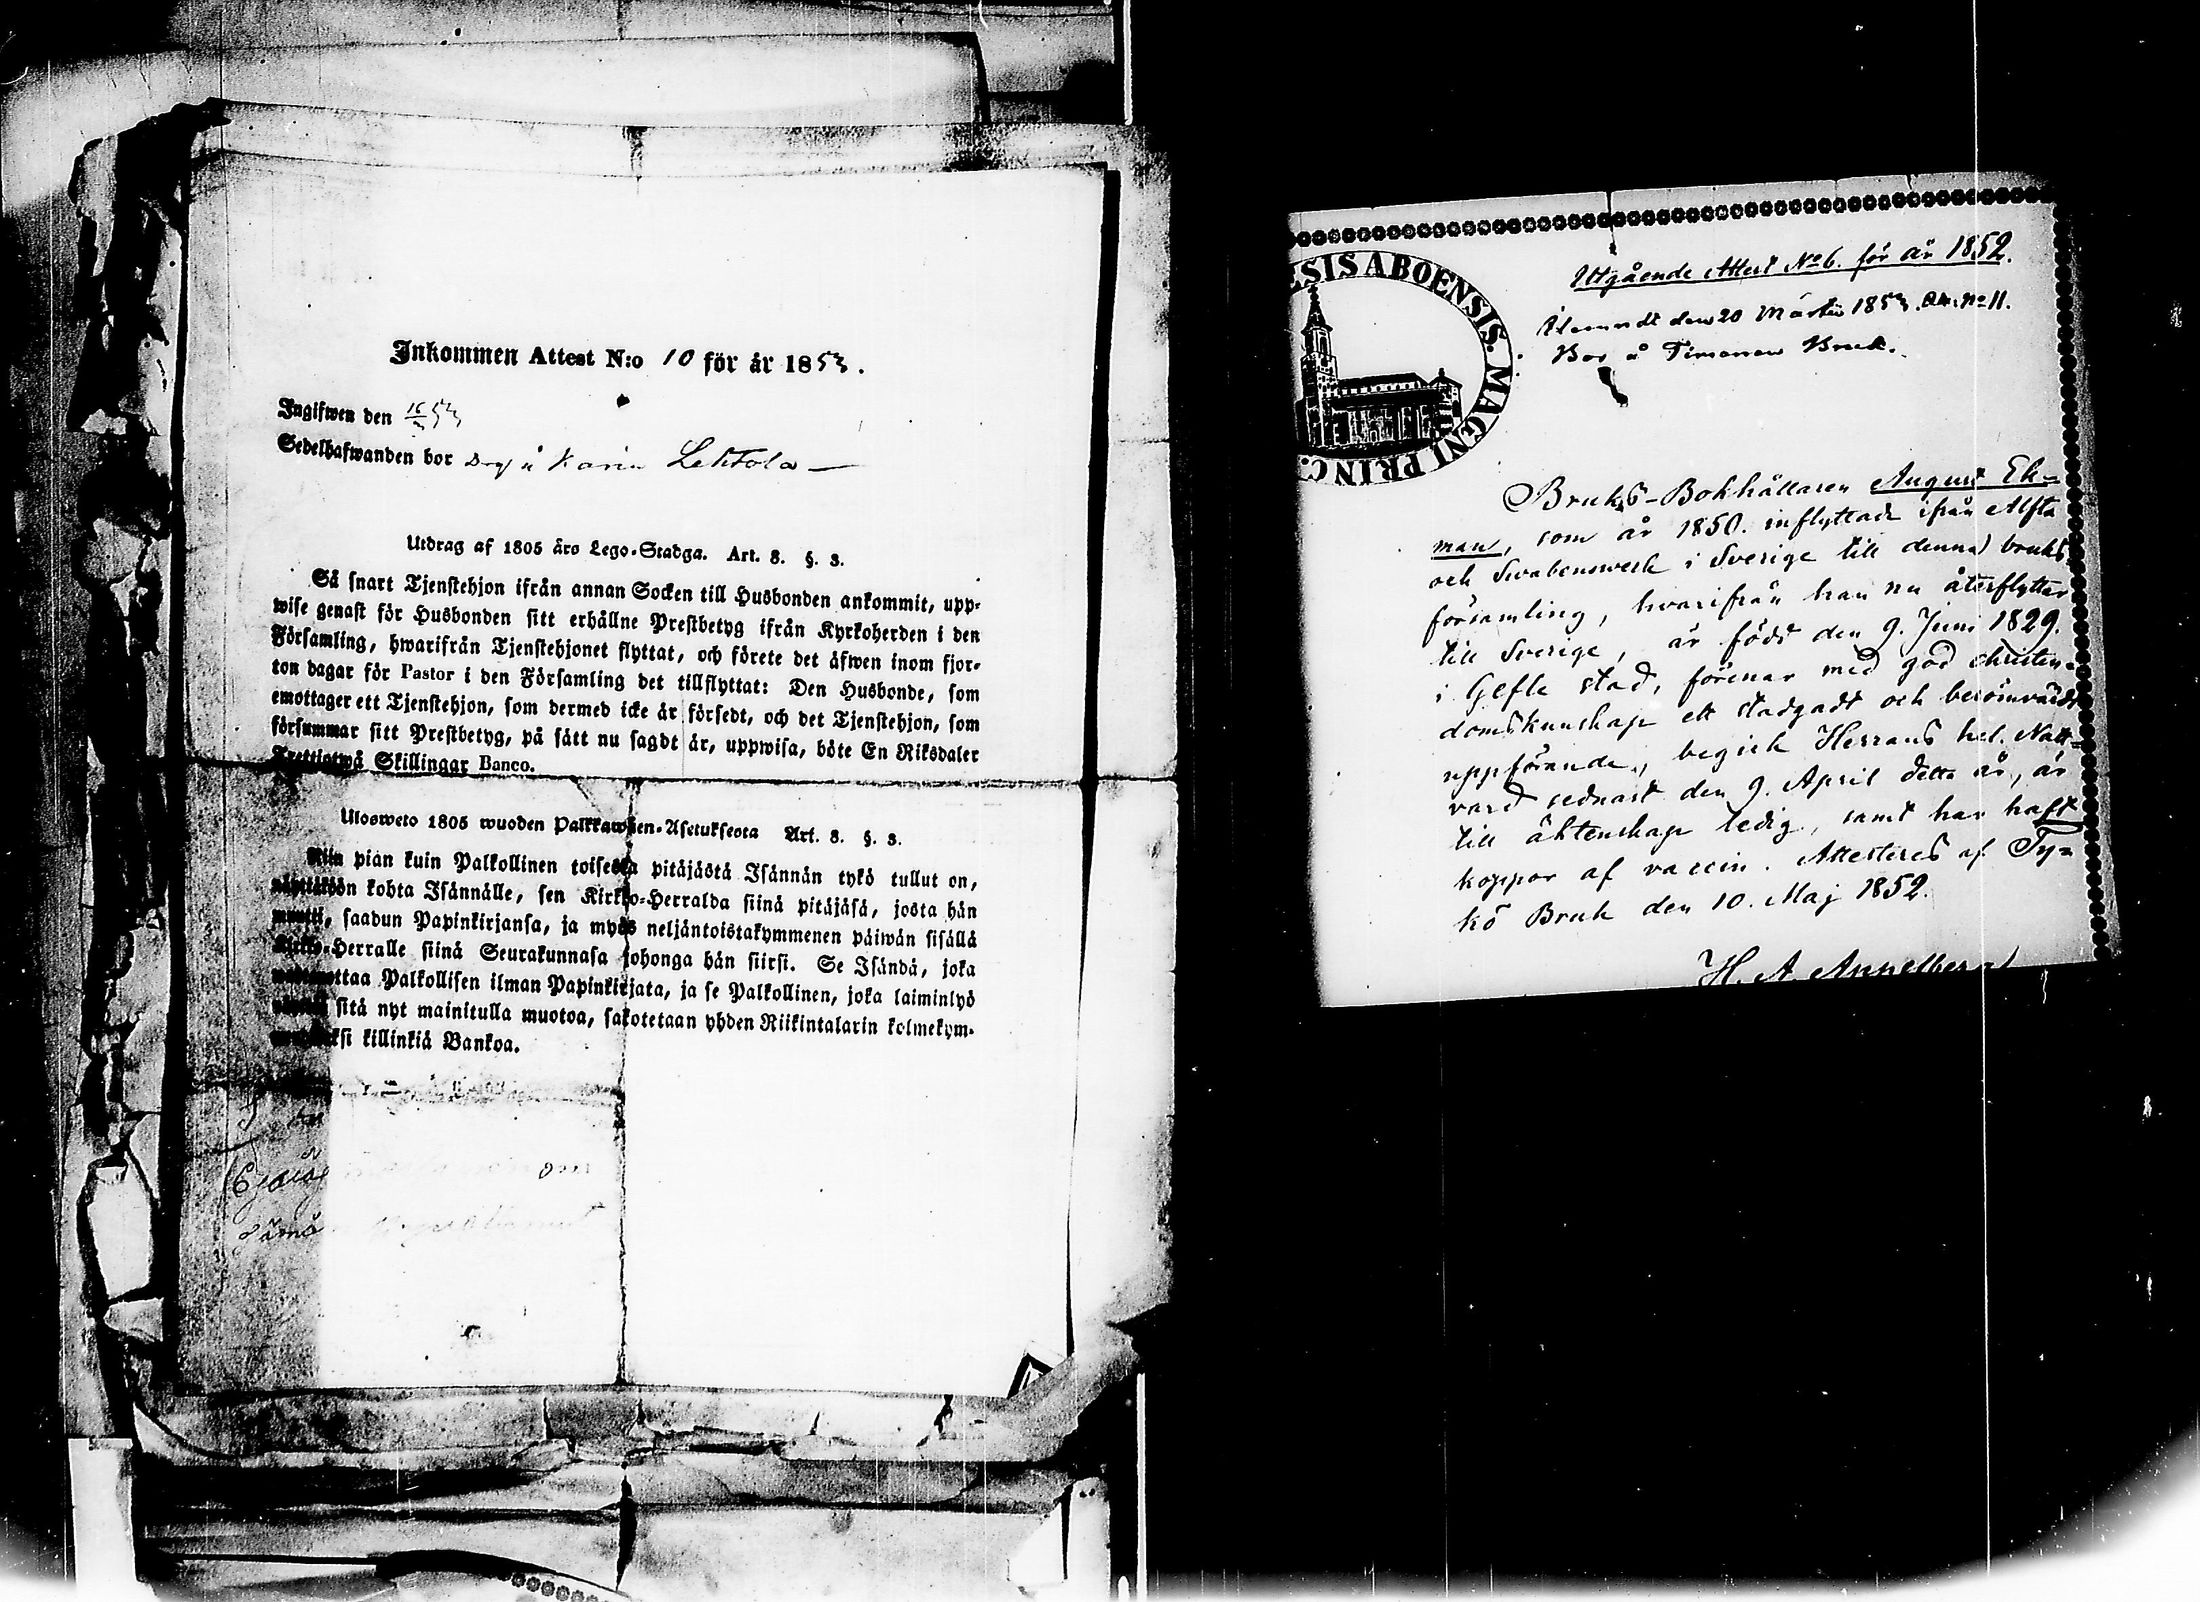 Inkommen Attest N:o 10 för år 1853.
Ingifwen den 16/3 53
Sedelhafwanden bor
Utdrag af 1805 års Lego-Stadga. Art. 8. §. 3.
Så snart Tjenstehjon ifrån annan Socken till Husbonden ankommit, upp-
wise genast för Husbonden sitt erhållne Prestbetyg ifrån Kyrkoherden i den
Församling, hwarifrån Tjenstehjonet flyttat, och förete det äfwen inom fjor-
ton dagar för Pastor i den Församling det tillflyttat: Den Husbonde, som
emottager ett Tjenstehjon, som dermed icke är försedt, och det Tjenstehjon, som
försummar sitt Prestbetyg, på sätt nu sagdt är, uppwisa, böte En Riksdaler
Trettiotwå Skillingar Banco.
Ulosweto 1805 wuoden Palkkawäen-Asetuksesta Art. 8. §. 3.
Niin piän kuin Palkollinen toisesta pitäjästä Isännän tykö tullut on,
näyttäköön kohta Isännälle, sen Kirkko-Herralda siinä pitäjäsä, josta hän
muutti, saadun Papinkirjansa, ja myös neljäntoistakymmenen päiwän sisällä
Kirkko-Herralle siinä Seurakunnasa johonga hän siirsi. Se Isändä, joka
Palkollisen ilman Papinkirjata, ja se Palkollinen, joka laiminlyö
sitä nyt mainitulla muotoa, sakotetaan yhden Riikintalarin kolmekym-
killinkiä Bankoa.
SIS ABOENSIS. MAGNI PRINC.
Utgående Attest No 6. för år 1852.
den 20 Martii 1853. No 11.
Bor å Bruk.
Bruks-Bokhållaren August Ek-
man, som år 1850. inflyttade ifrån Alfta
och Swabenswerk i Sverige till denna bruks
församling, hvarifrån han nu återflyttar
till Sverige, är född den 9. Juni 1829.
i Gefle stad, förenar med god christen-
domskunskap ett stadgadt och berömvärdt
uppförande, begick Herrans hel. Natt-
vard sednast den 9. April detta år, är
till äktenskap ledig, samt har haft
koppor af vaccin. Attesteres af Ty-
kö Bruk den 10. Maj 1852.
H. A. Appelberg